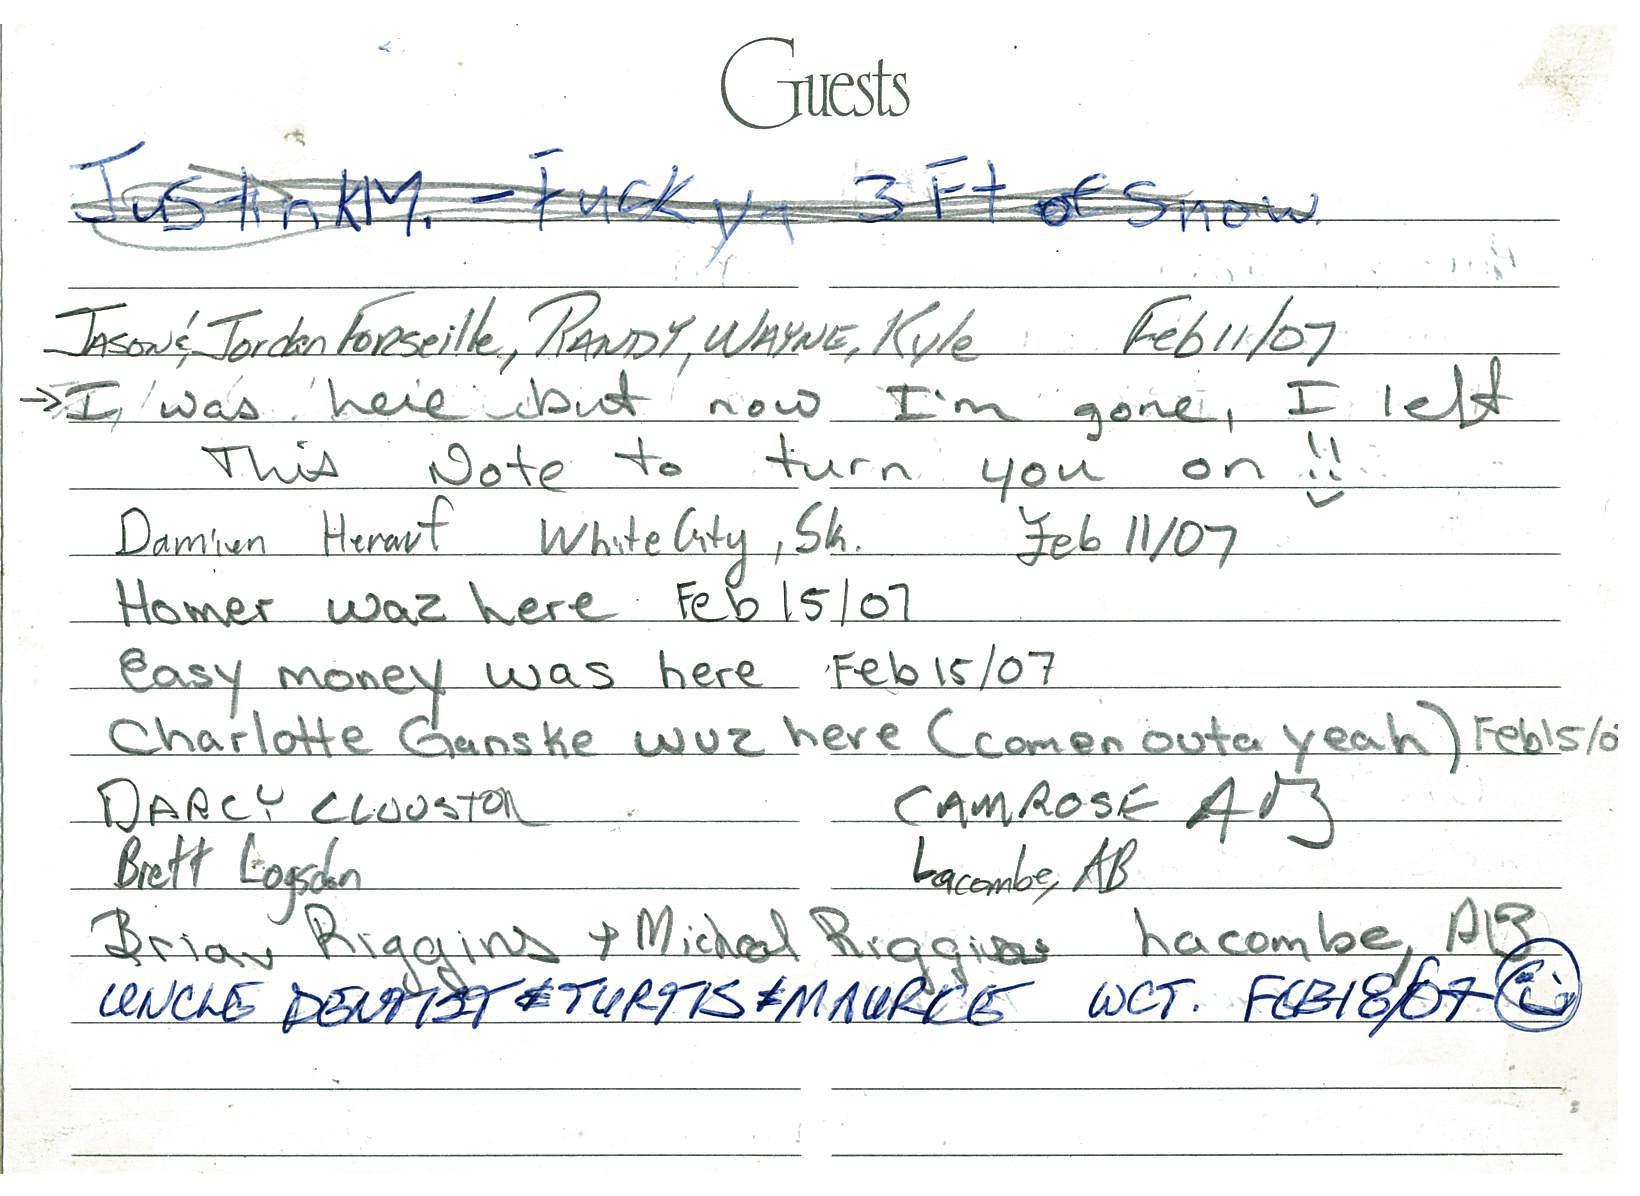 Guests
Justin KM. - Fuck ya 3 Ft of Snow
Jason &, Jordan Forseille, RANDY, WAYNE, Kyle Feb 11/07
→ I was here but now I'm gone, I left
This Note to turn you on !!
Damien Herauf White City, Sk. Feb 11/07
Homer waz here Feb 15/07
Easy money was here Feb 15/07
Charlotte Ganske wuz here (comen outa yeah) Feb 15/0
DARCY CLOUSTON CAMROSE AB
Brett Logsdon Lacombe, AB
Brian Riggins + Micheal Riggins Lacombe, AB
UNCLE DENTIST & TURTIS & MAURICE WCT. FEB 18/07